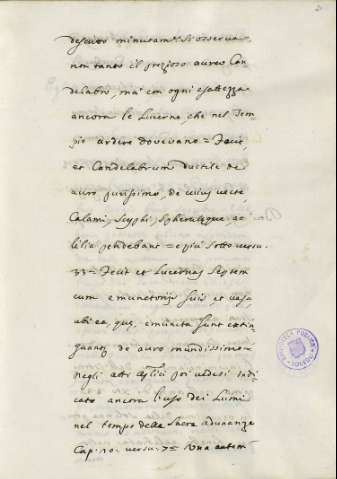 descritto minutam.te si osserva,
non tanto il prezioso aureo Can
delabro, mai con ogni esattezza
ancora le Lucerne, che nel Tem
pio ardere dovevano = Fecit
et Candelabrum ductile de
auro purissimo, de cuius vecte
Calami, Scyphi, Spherulęque, ac
lilia pendebant = e più sotto versu.
= Fecit et Lucernas Septem
cum emunctorijs suis et vasa
ubi ea, quę emuncta sunt extin
guantq. de auro mundissimo =
negli atti poi vedesi indi
cato ancora l'uso dei Lumi
nel tempo della Sacra adunanza
Cap: 20: versu: 7 = Una autem